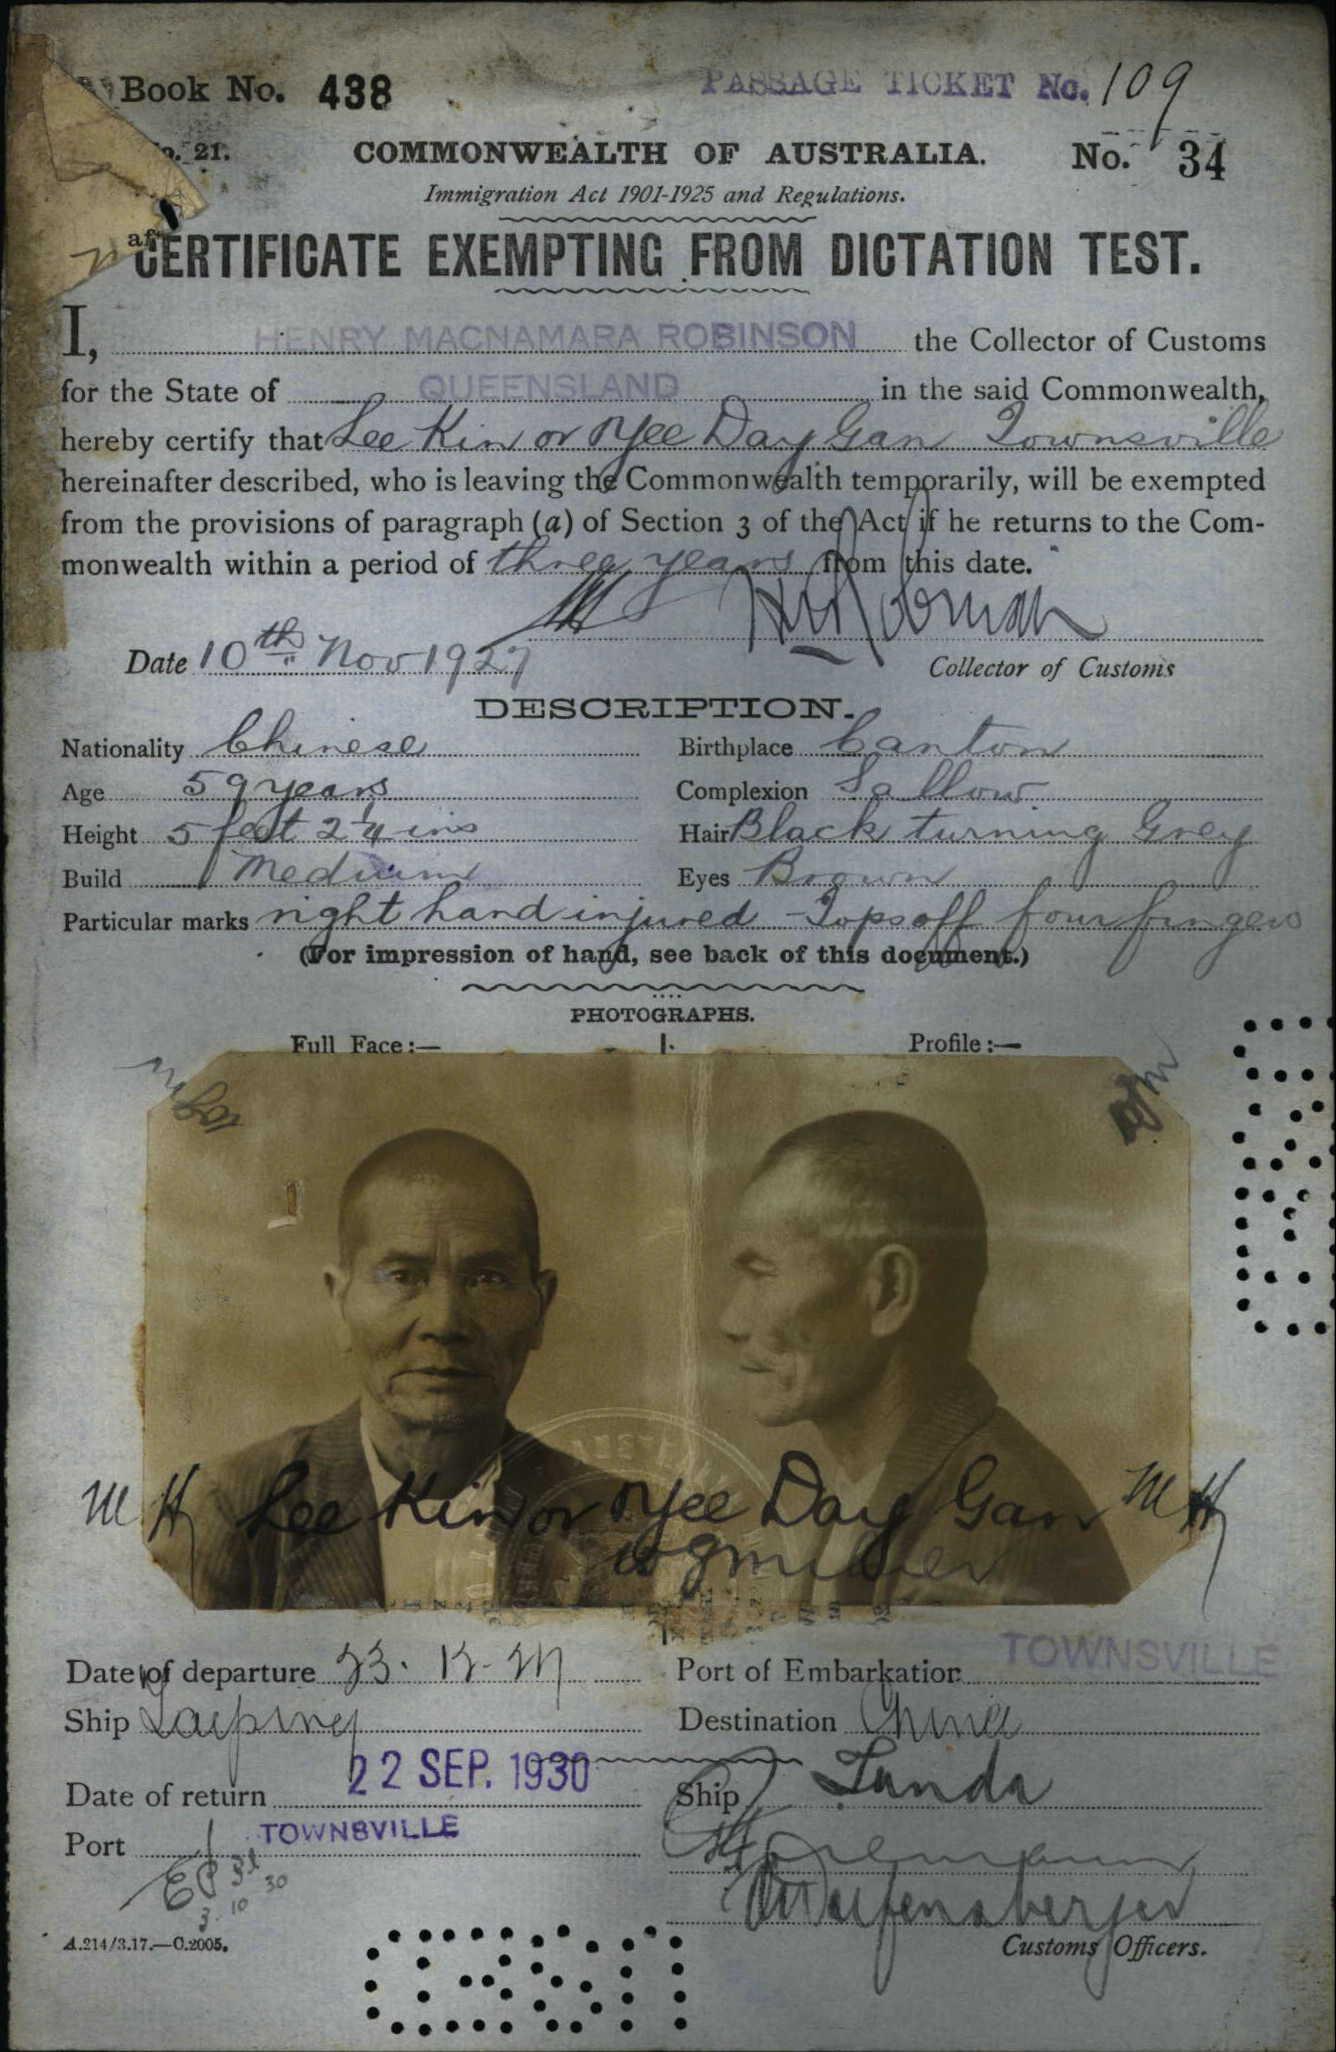 Book No. 438
PASSAGE TICKET No. 109
No. 21.
COMMONWEALTH OF AUSTRALIA.
No. 34
Immigration Act 1901-1925 and Regulations.
CERTIFICATE EXEMPTING FROM DICTATION TEST.
I, HENRY MACNAMARA ROBINSON the Collector of Customs
for the State of QUEENSLAND in the said Commonwealth,
hereby certify that Lee Kin or Yee Day Gan Townsville
hereinafter described, who is leaving the Commonwealth temporarily, will be exempted
from the provisions of paragraph (a) of Section 3 of the Act if he returns to the Com-
monwealth within a period of three years from this date.
Date 10th Nov 1927
Collector of Customs
DESCRIPTION.
Nationality Chinese Birthplace Canton
Age 59 years Complexion Sallow
Height 5 feet 2 1/4 ins Hair Black turning Grey
Build Medium Eyes Brown
Particular marks right hand injured - Tops off four fingers
(For impression of hand, see back of this document.)
PHOTOGRAPHS.
Full Face:— Profile:—
MH Lee Kin or Yee Day Gan MH
Date of departure 23. 12. 27 Port of Embarkation TOWNSVILLE
Ship Taiping Destination China
Date of return 22 SEP. 1930 Ship Tanda
Port TOWNSVILLE
3 10 30
A.214/3.17.—C.2005.
Customs Officers.